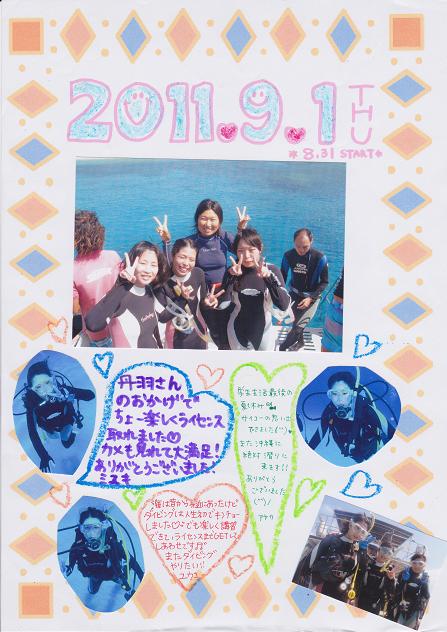 2011.9.1 THU
*8.31 START*
丹羽さん
のおかげで
ちょー楽しくライセンス
取れました♡
カメも見れて大満足!
ありがとうございました!
ミズキ
学生生活最後の
夏休み
サイコーの思い出
できました(^^)
また沖縄に
絶対潜りに
来ます!!
ありがとう
ございました
(^^)/
アヤカ
海は昔から
ダイビングは人生初でキンチョー
しました
でも楽しく講習
できて、ライセンスまでGETして
しあわせです
またダイビング
やりたい!!
ユカコ